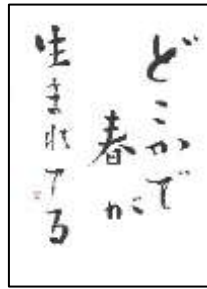 どこかで
春が
生まれてる